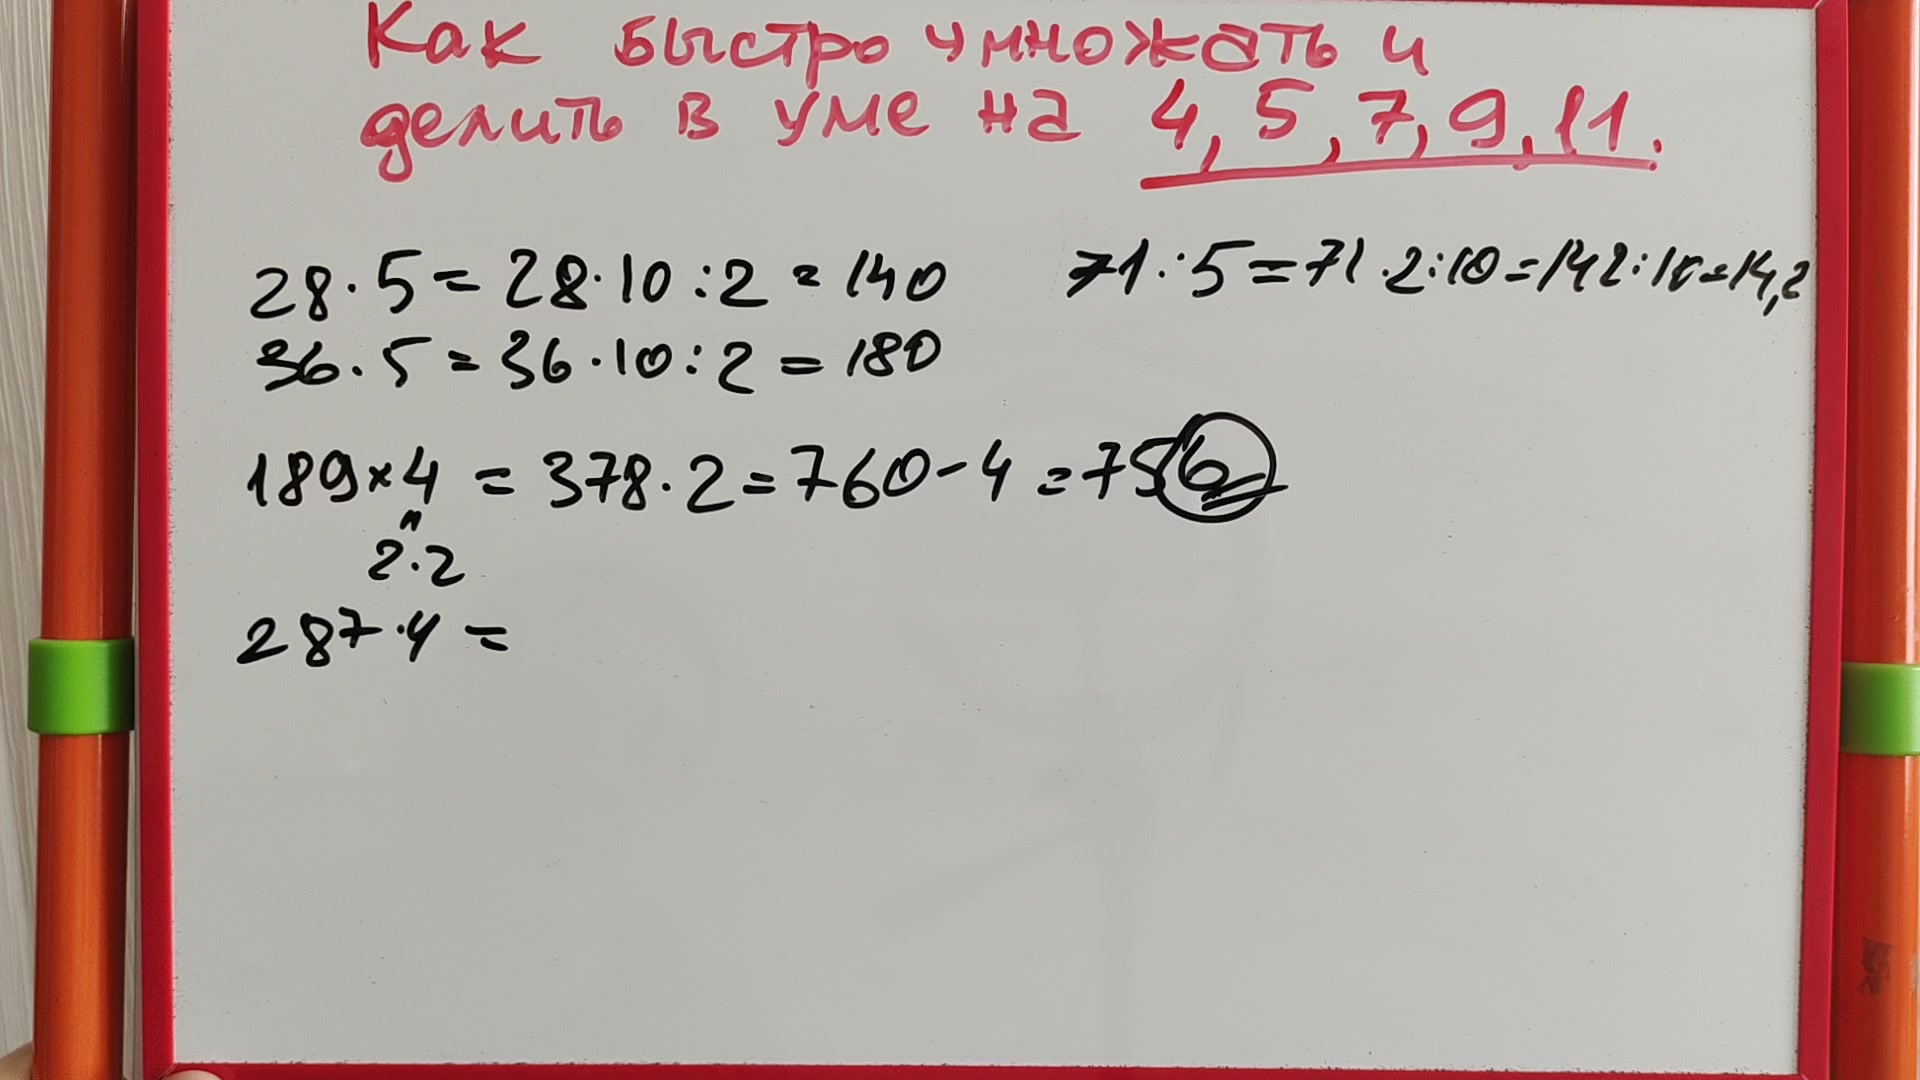 Как быстро умножать и
делить в уме на 4, 5, 7, 9, 11.
28·5=28·10:2=140
71:5=71·2:10=142:10=14,2
36·5=36·10:2=180
189×4=378·2=760-4=756
2·2
287·4=